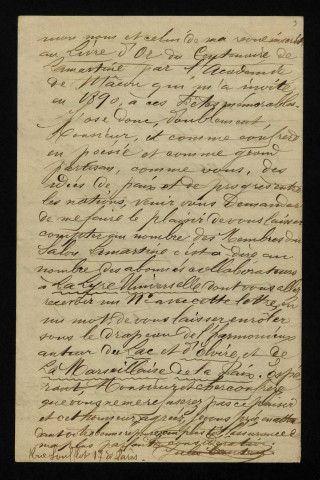 3
mon nom et celui de ma revue inscrits
au Livre d'Or du Centenaire de
Lamartine par l'Académie
de Mâcon qui m'a invité
en 1890, à ces fêtes mémorables.
J'ose donc, doublement
Monsieur, et comme confrère
en poésie et comme grand
partisan, comme vous, des
idées de paix et de progrès entre
les nations, venir vous demander
de me faire le plaisir de vous laisser
compter au nombre des Membres du
Salon Lamartine c'est-à-dire au
nombre des abonnés collaborateurs
à La Lyre Universelle dont vous allez
recevoir un No avec cette lettre, en
un mot de vous laisser enrôler
sous le drapeau de l'harmonieux
auteur du Lac et d'Elvire, et de
La Marseillaise de la Paix. Espé
rant Monsieur et cher confrère
que vous ne me refuserez pas ce plaisir
et cet honneur agréez, je vous prie
l'assurance de
ma plus parfaite considération
Paris.